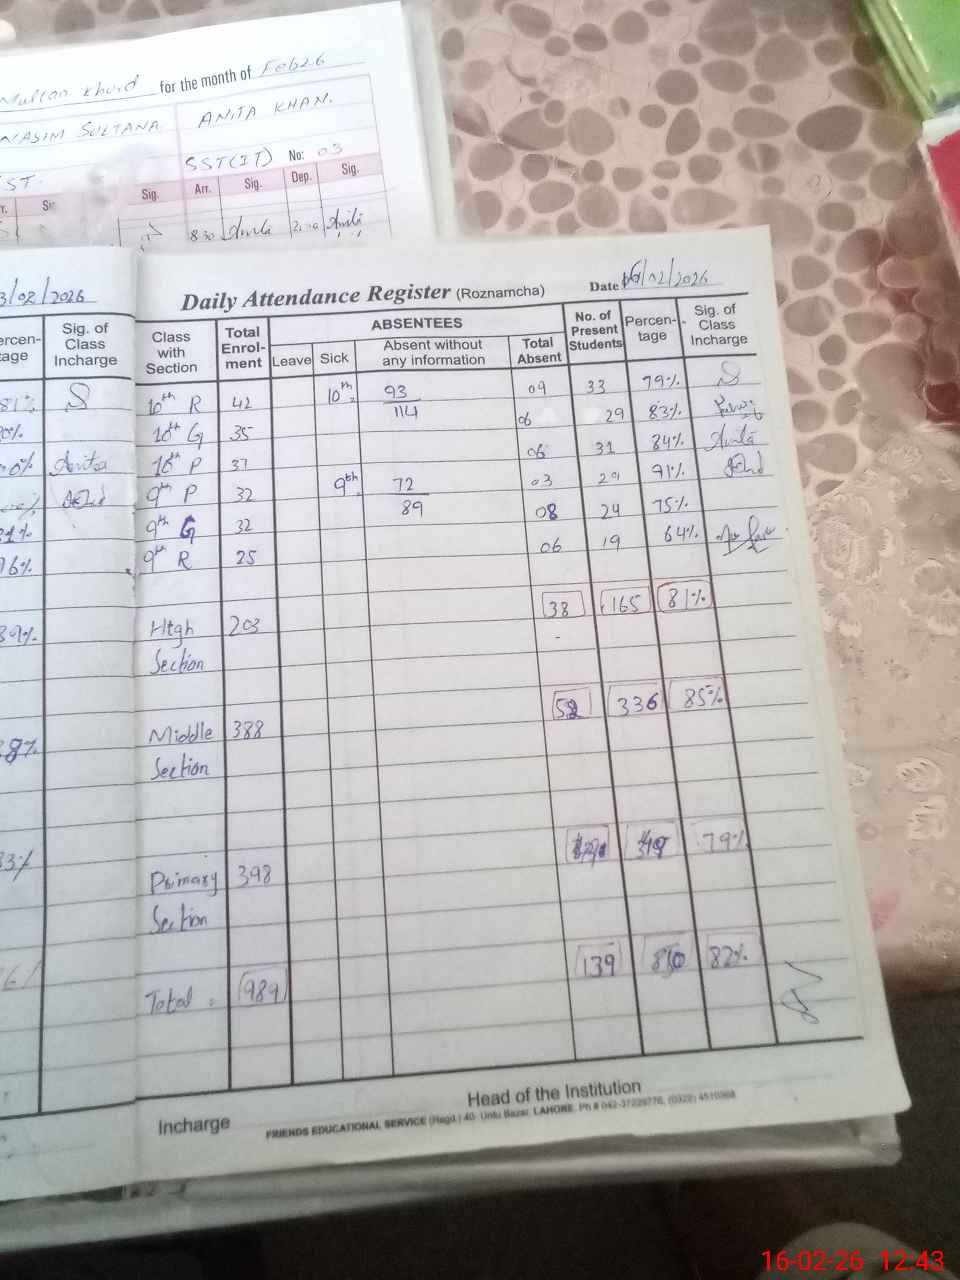 Multan Khurd for the month of Feb 26
NASIM SULTANA ANITA KHAN.
SST. SST(IT) No: 03
Sig. Arr. Sig. Dep. Sig.
8:30 Anita Anita
/02/2026
Daily Attendance Register (Roznamcha) Date 16/02/2026
Sig. of Class Incharge
Class with Section Total Enrol- ment ABSENTEES No. of Present Students Percen- tage Sig. of Class Incharge
Leave Sick Absent without any information Total Absent
10th R 42 10th 93/114 09 33 79%
10th G 35 06 29 83%
10th P 37 06 31 84% Anita
9th P 32 9th 72/89 03 29 91%
9th G 32 08 24 75%
9th R 25 06 19 64%
High Section 203 38 165 81%
Middle Section 388 52 336 85%
Primary Section 398 79%
Total = 989 139 850 82%
81%
Anitaa
89%
Incharge
Head of the Institution
FRIENDS EDUCATIONAL SERVICE (Regd.) 40- Urdu Bazar, LAHORE.
16-02-26 12:43